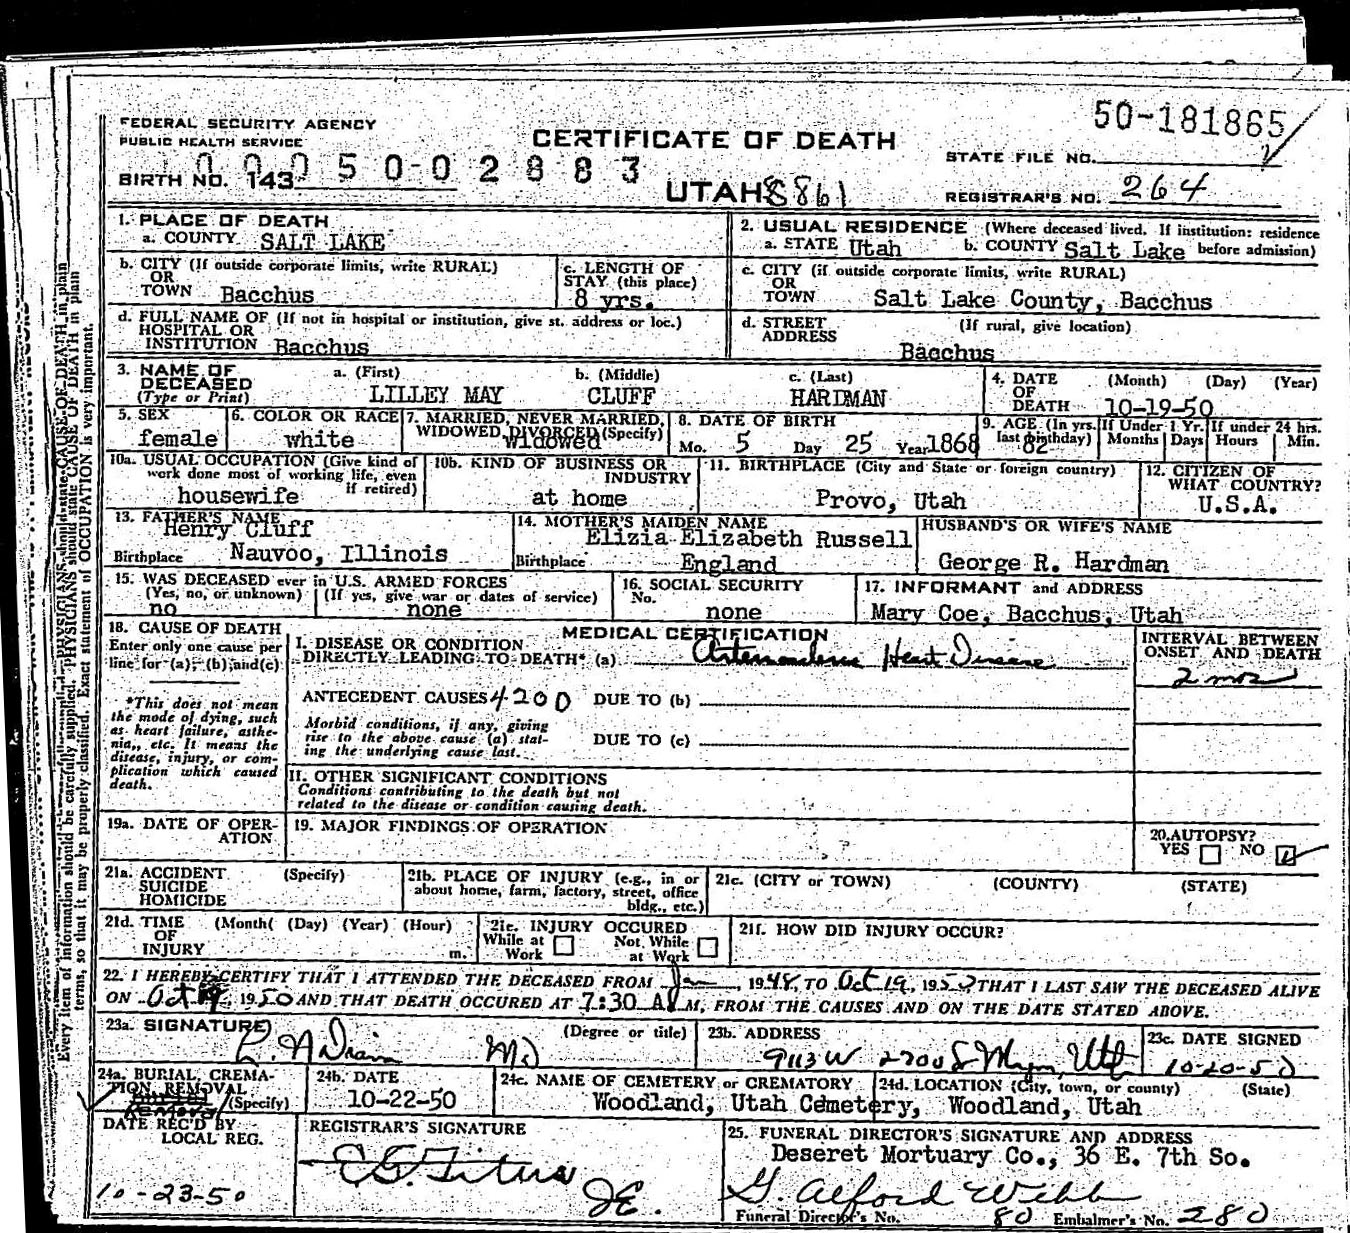 50-181865
FEDERAL SECURITY AGENCY
PUBLIC HEALTH SERVICE
CERTIFICATE OF DEATH
STATE FILE NO.
0 0 0 5 0 - 0 2 8 8 3
BIRTH NO. 143
UTAH 8861
REGISTRAR'S NO. 264
1. PLACE OF DEATH
a. COUNTY SALT LAKE
2. USUAL RESIDENCE (Where deceased lived. If institution: residence before admission)
a. STATE Utah b. COUNTY Salt Lake
b. CITY (If outside corporate limits, write RURAL)
OR
TOWN Bacchus
c. LENGTH OF
STAY (this place)
8 yrs.
c. CITY (if outside corporate limits, write RURAL)
OR
TOWN Salt Lake County, Bacchus
d. FULL NAME OF (If not in hospital or institution, give st. address or loc.)
HOSPITAL OR
INSTITUTION Bacchus
d. STREET (If rural, give location)
ADDRESS
Bacchus
3. NAME OF
DECEASED
(Type or Print)
a. (First) b. (Middle) c. (Last)
LILLEY MAY CLUFF HARDMAN
4. DATE (Month) (Day) (Year)
OF
DEATH 10-19-50
5. SEX
female
6. COLOR OR RACE
white
7. MARRIED, NEVER MARRIED,
WIDOWED, DIVORCED (Specify)
widowed
8. DATE OF BIRTH
Mo. 5 Day 25 Year 1868
9. AGE (In yrs. last birthday)
82
If Under 1 Yr.
Months Days
If under 24 hrs.
Hours Min.
10a. USUAL OCCUPATION (Give kind of
work done most of working life, even
if retired)
housewife
10b. KIND OF BUSINESS OR
INDUSTRY
at home
11. BIRTHPLACE (City and State or foreign country)
Provo, Utah
12. CITIZEN OF
WHAT COUNTRY?
U.S.A.
13. FATHER'S NAME
Henry Cluff
Birthplace Nauvoo, Illinois
14. MOTHER'S MAIDEN NAME
Elizia Elizabeth Russell
Birthplace England
HUSBAND'S OR WIFE'S NAME
George R. Hardman
15. WAS DECEASED ever in U.S. ARMED FORCES
(Yes, no, or unknown) (If yes, give war or dates of service)
no none
16. SOCIAL SECURITY
No.
none
17. INFORMANT and ADDRESS
Mary Coe, Bacchus, Utah
18. CAUSE OF DEATH
Enter only one cause per
line for (a), (b) and (c)
MEDICAL CERTIFICATION
I. DISEASE OR CONDITION
DIRECTLY LEADING TO DEATH* (a) Heart Disease
INTERVAL BETWEEN
ONSET AND DEATH
2 mos
*This does not mean
the mode of dying, such
as heart failure, asthe-
nia,, etc. It means the
disease, injury, or com-
plication which caused
death.
ANTECEDENT CAUSES 4200 DUE TO (b)
Morbid conditions, if any, giving
rise to the above cause (a) stat-
ing the underlying cause last.
DUE TO (c)
II. OTHER SIGNIFICANT CONDITIONS
Conditions contributing to the death but not
related to the disease or condition causing death.
19a. DATE OF OPER-
ATION
19. MAJOR FINDINGS OF OPERATION
20. AUTOPSY?
YES NO
21a. ACCIDENT (Specify)
SUICIDE
HOMICIDE
21b. PLACE OF INJURY (e.g., in or
about home, farm, factory, street, office
bldg., etc.)
21c. (CITY or TOWN) (COUNTY) (STATE)
21d. TIME (Month( (Day) (Year) (Hour)
OF
INJURY m.
21e. INJURY OCCURED
While at Work Not While at Work
21f. HOW DID INJURY OCCUR?
22. I HEREBY CERTIFY THAT I ATTENDED THE DECEASED FROM Jan, 1948, TO Oct 19, 1950 THAT I LAST SAW THE DECEASED ALIVE
ON Oct 19, 1950 AND THAT DEATH OCCURED AT 7:30 A M, FROM THE CAUSES AND ON THE DATE STATED ABOVE.
23a. SIGNATURE (Degree or title)
MD
23b. ADDRESS
9113 W 2700 S Utah
23c. DATE SIGNED
10-20-50
24a. BURIAL, CREMA-
TION, REMOVAL
(Specify)
burial
Removal
24b. DATE
10-22-50
24c. NAME OF CEMETERY or CREMATORY
Woodland, Utah Cemetery,
24d. LOCATION (City, town, or county) (State)
Woodland, Utah
DATE REC'D BY
LOCAL REG.
10-23-50
REGISTRAR'S SIGNATURE
JE.
25. FUNERAL DIRECTOR'S SIGNATURE AND ADDRESS
Deseret Mortuary Co., 36 E. 7th So.
G. Alford Webb
Funeral Director's No. 80 Embalmer's No. 280
Every item of information should be carefully supplied. PHYSICIANS should state CAUSE OF DEATH in plain
terms, so that it may be properly classified. Exact statement of OCCUPATION is very important.